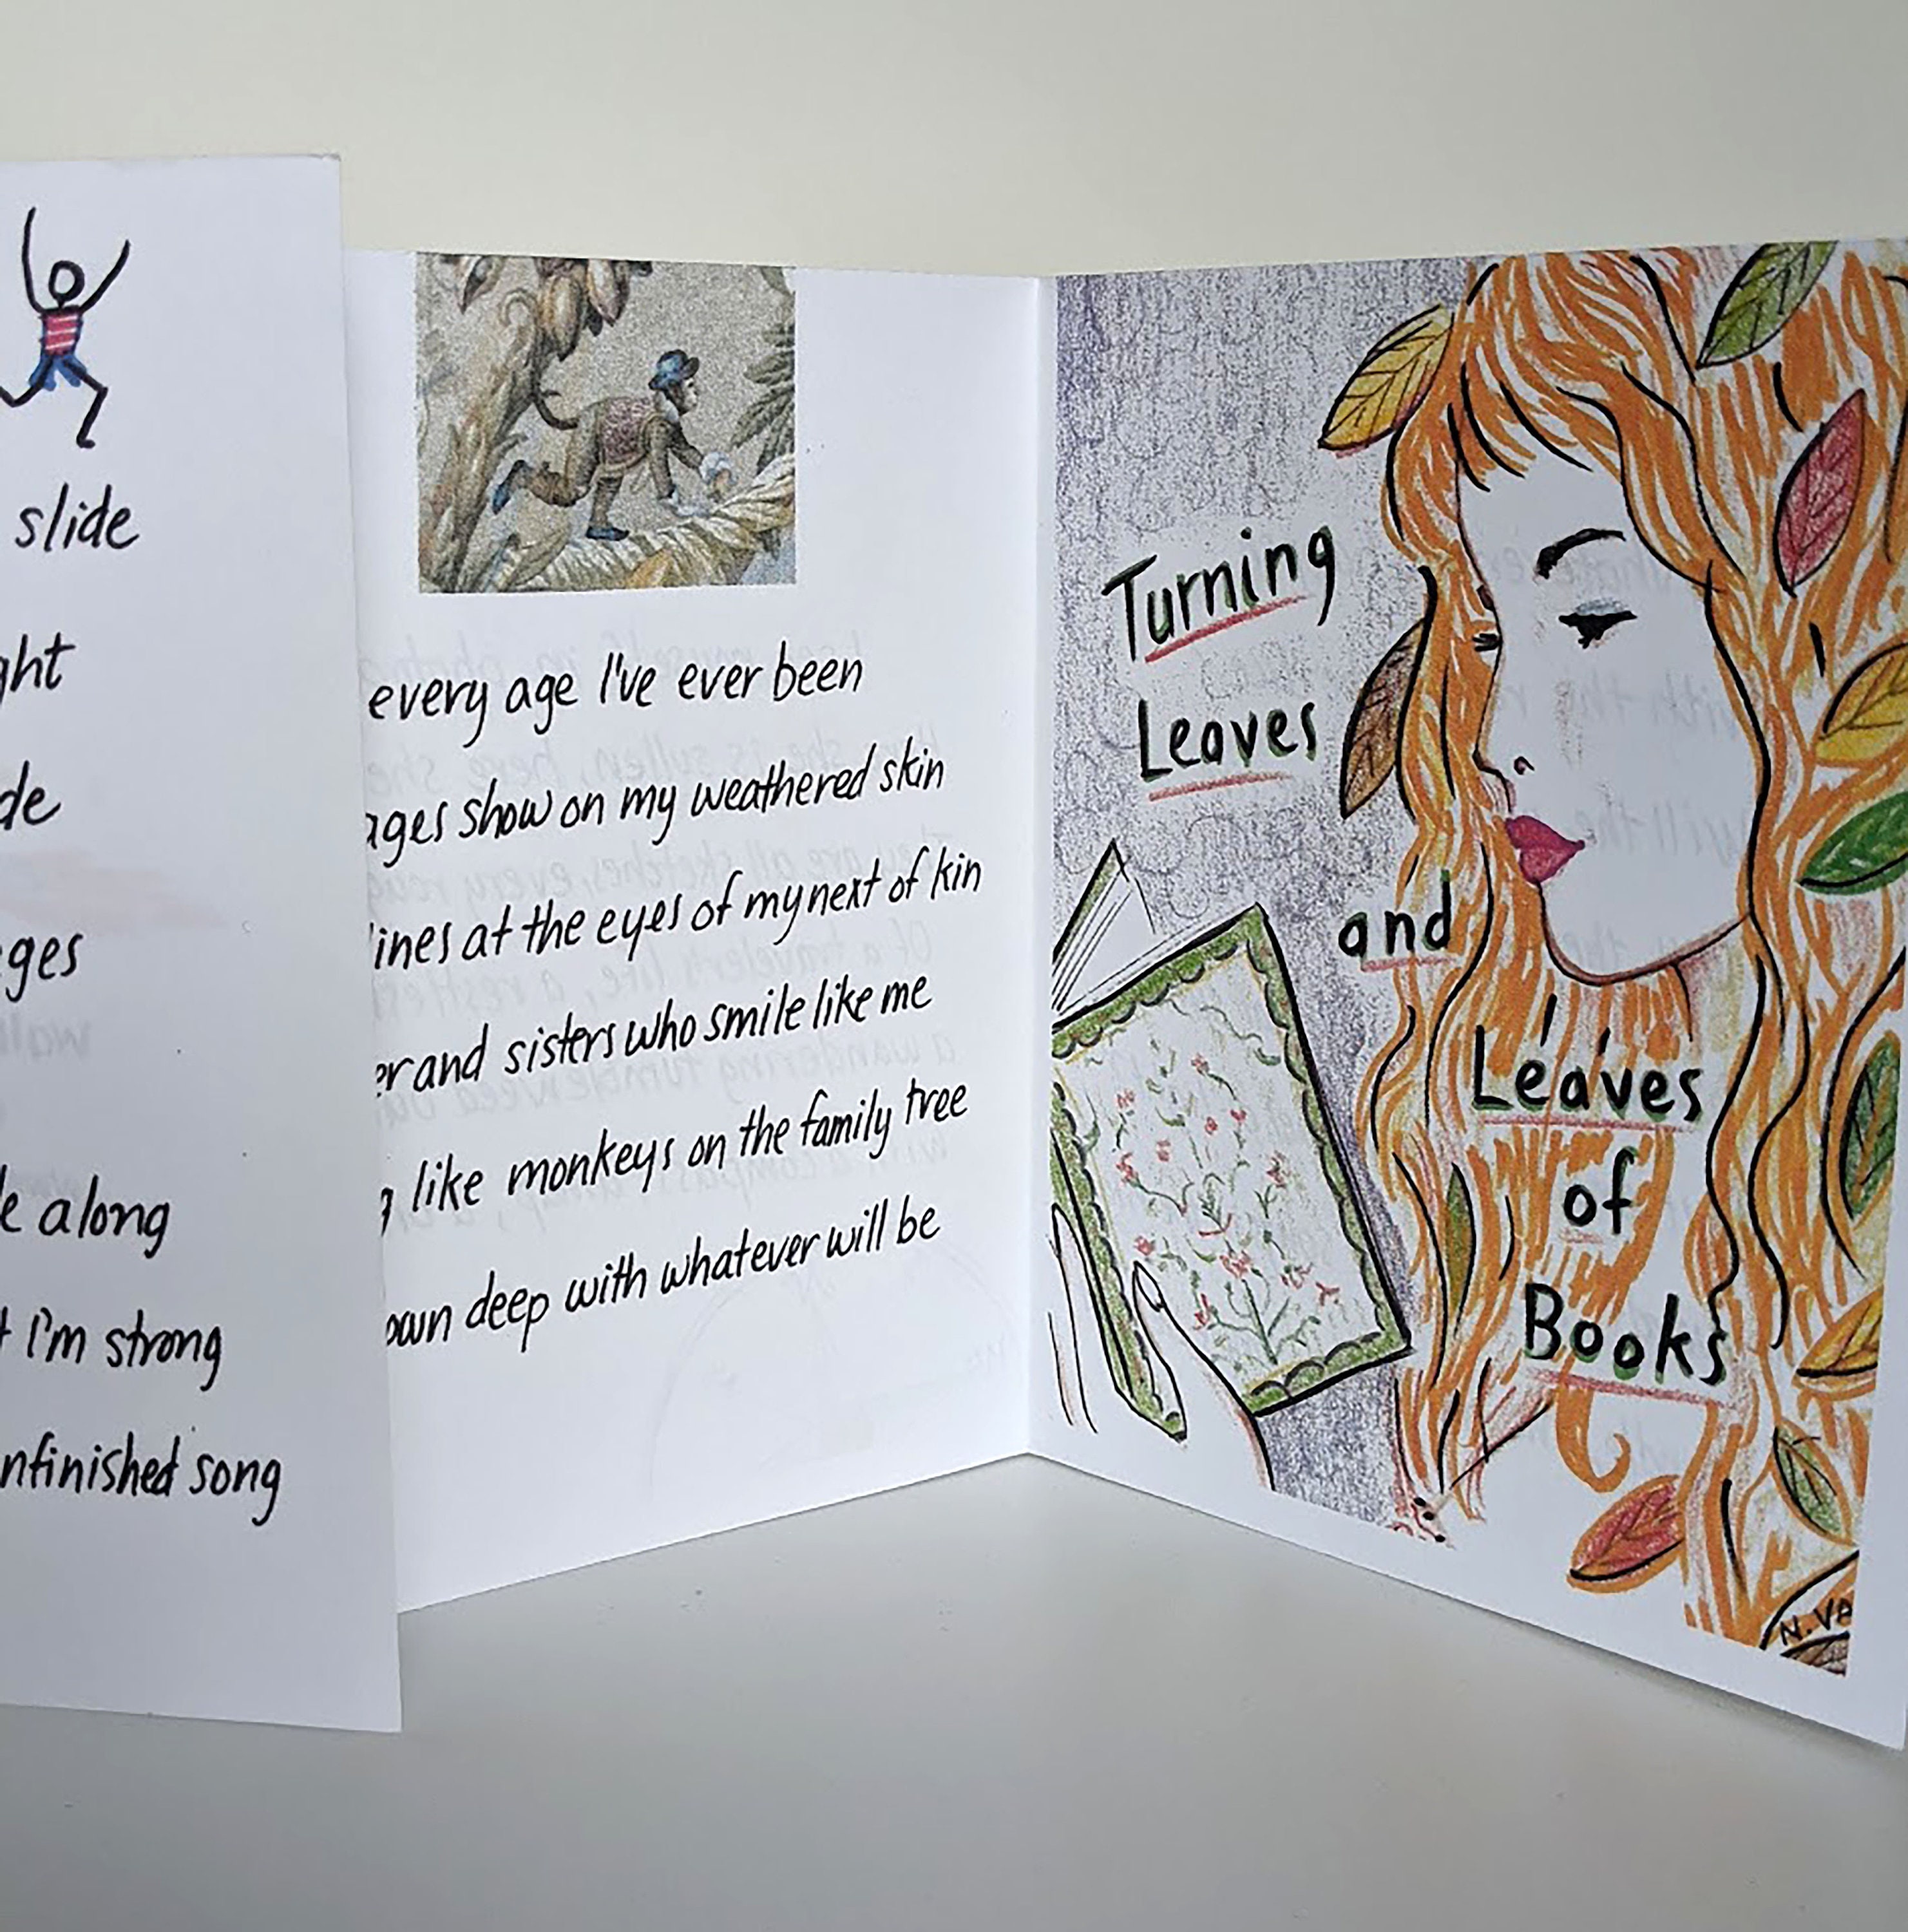 slide
along
I'm strong
song
every age I've ever been
show on my weathered skin
at the eyes of my next of kin
and sisters who smile like me
like monkeys on the family tree
deep with whatever will be
Turning
Leaves
and
Leaves
of
Books
N.VA